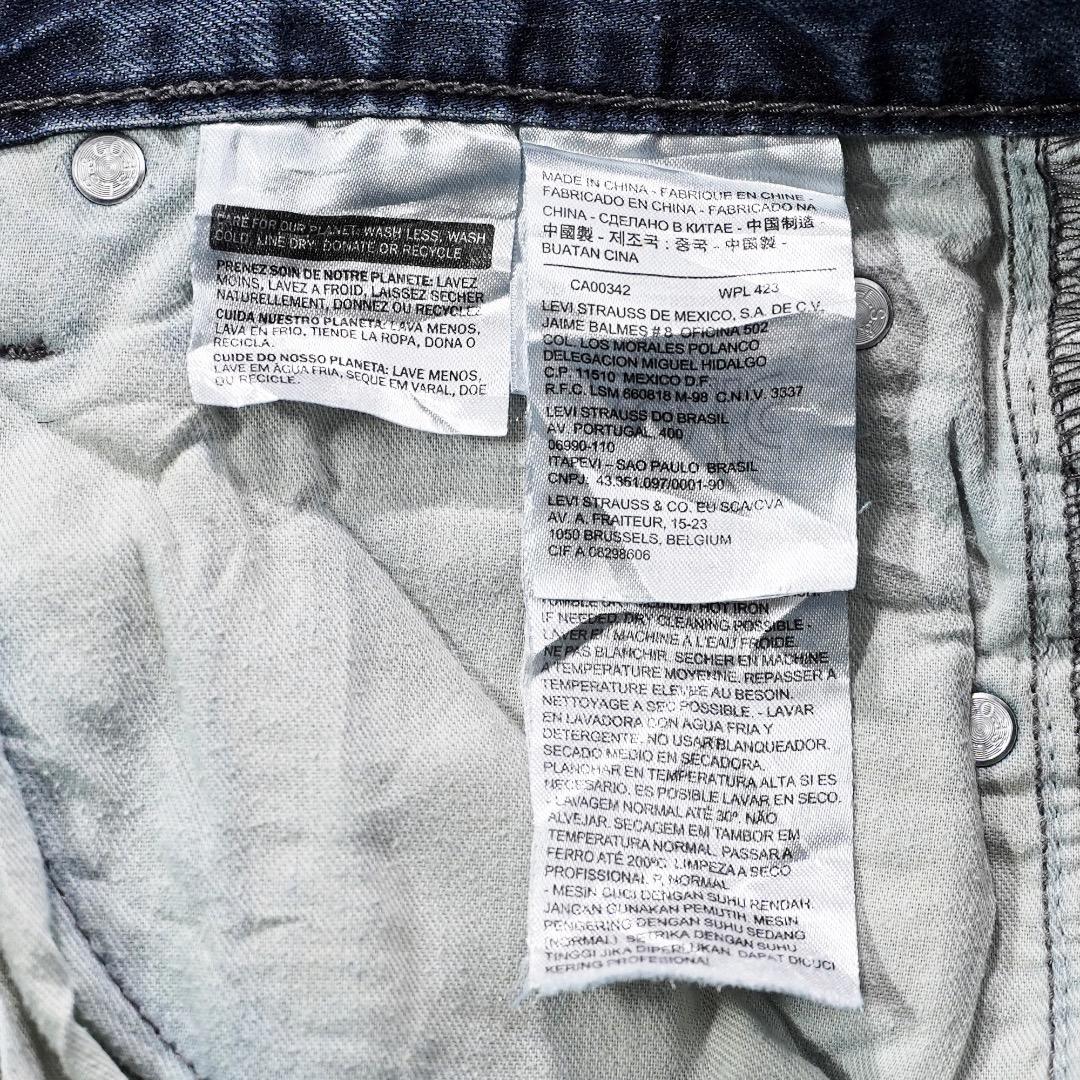 CARE FOR OUR PLANET: WASH LESS, WASH
COLD, LINE DRY, DONATE OR RECYCLE
PRENEZ SOIN DE NOTRE PLANETE: LAVEZ
MOINS, LAVEZ A FROID, LAISSEZ SECHER
NATURELLEMENT, DONNEZ OU RECYCLEZ
CUIDA NUESTRO PLANETA: LAVA MENOS,
LAVA EN FRIO, TIENDE LA ROPA, DONA O
RECICLA.
CUIDE DO NOSSO PLANETA: LAVE MENOS,
LAVE EM ÀGUA FRIA, SEQUE EM VARAL, DOE
OU RECICLE.
MADE IN CHINA - FABRIQUE EN CHINE -
FABRICADO EN CHINA - FABRICADO NA
CHINA - СДЕЛАНО В КИТАЕ - 中国制造 -
中國製 - 제조국 : 중국 - 中国製 -
BUATAN CINA
CA00342 WPL 423
LEVI STRAUSS DE MEXICO, S.A. DE C.V.
JAIME BALMES # 8 OFICINA 502
COL. LOS MORALES POLANCO
DELEGACION MIGUEL HIDALGO
C.P. 11510 MEXICO D.F
R.F.C. LSM 860818 M-98 C.N.I.V. 3337
LEVI STRAUSS DO BRASIL
AV. PORTUGAL, 400
06990-110
ITAPEVI – SAO PAULO BRASIL
CNPJ. 43.361.097/0001-90
LEVI STRAUSS & CO. EU SCA/CVA
AV. A. FRAITEUR, 15-23
1050 BRUSSELS, BELGIUM
CIF A 08298606
TUMBLE DRY MEDIUM. HOT IRON
IF NEEDED. DRY CLEANING POSSIBLE -
LAVER EN MACHINE A L'EAU FROIDE.
NE PAS BLANCHIR. SECHER EN MACHINE
A TEMPERATURE MOYENNE. REPASSER A
TEMPERATURE ELEVEE AU BESOIN.
NETTOYAGE A SEC POSSIBLE. - LAVAR
EN LAVADORA CON AGUA FRIA Y
DETERGENTE. NO USAR BLANQUEADOR.
SECADO MEDIO EN SECADORA.
PLANCHAR EN TEMPERATURA ALTA SI ES
NECESARIO. ES POSIBLE LAVAR EN SECO.
- LAVAGEM NORMAL ATÉ 30º. NÃO
ALVEJAR. SECAGEM EM TAMBOR EM
TEMPERATURA NORMAL. PASSAR A
FERRO ATÉ 200ºC. LIMPEZA A SECO
PROFISSIONAL P, NORMAL
- MESIN CUCI DENGAN SUHU RENDAH.
JANGAN GUNAKAN PEMUTIH. MESIN
PENGERING DENGAN SUHU SEDANG
(NORMAL). SETRIKA DENGAN SUHU
TINGGI JIKA DIPERLUKAN. DAPAT DICUCI
KERING PROFESIONAL